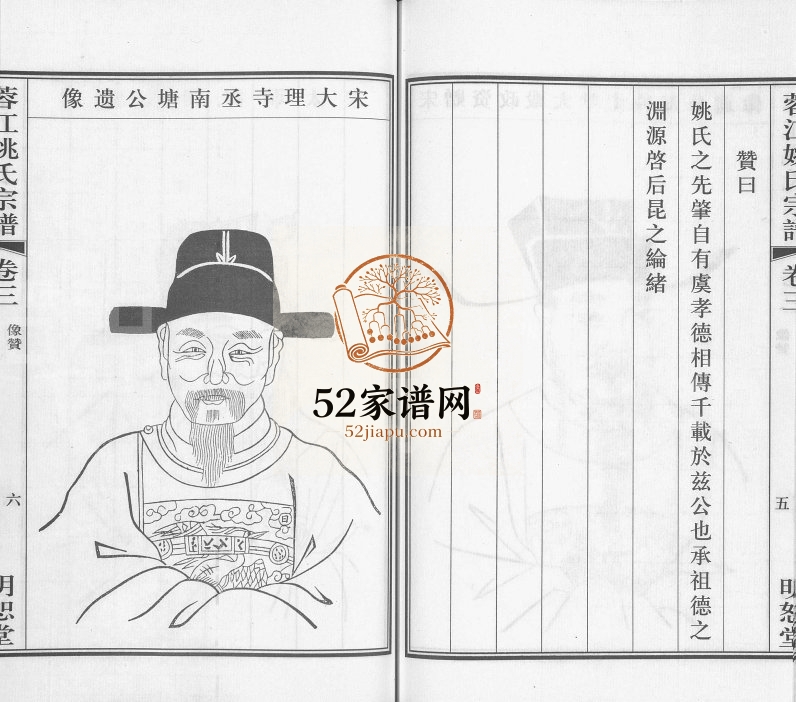 蓉江姚氏宗譜
卷三
五
明恕堂
贊曰
姚氏之先肇自有虞孝德相傳千載於茲公也承祖德之
淵源啓后昆之綸緒
宋大理寺丞南塘公遗像
蓉江姚氏宗譜
卷三
像贊
六
明恕堂
52家谱网
52jiapu.com